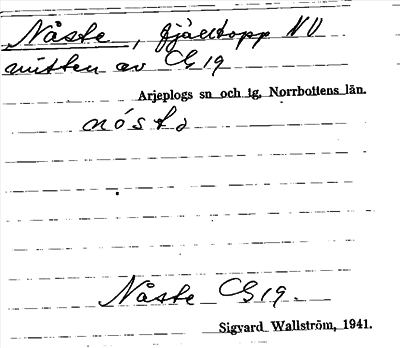 Nåste, fjälltopp NV
mitten av C19
Arjeplogs sn och tg, Norrbottens län.
Nåste C19.
Sigvard Wallström, 1941.